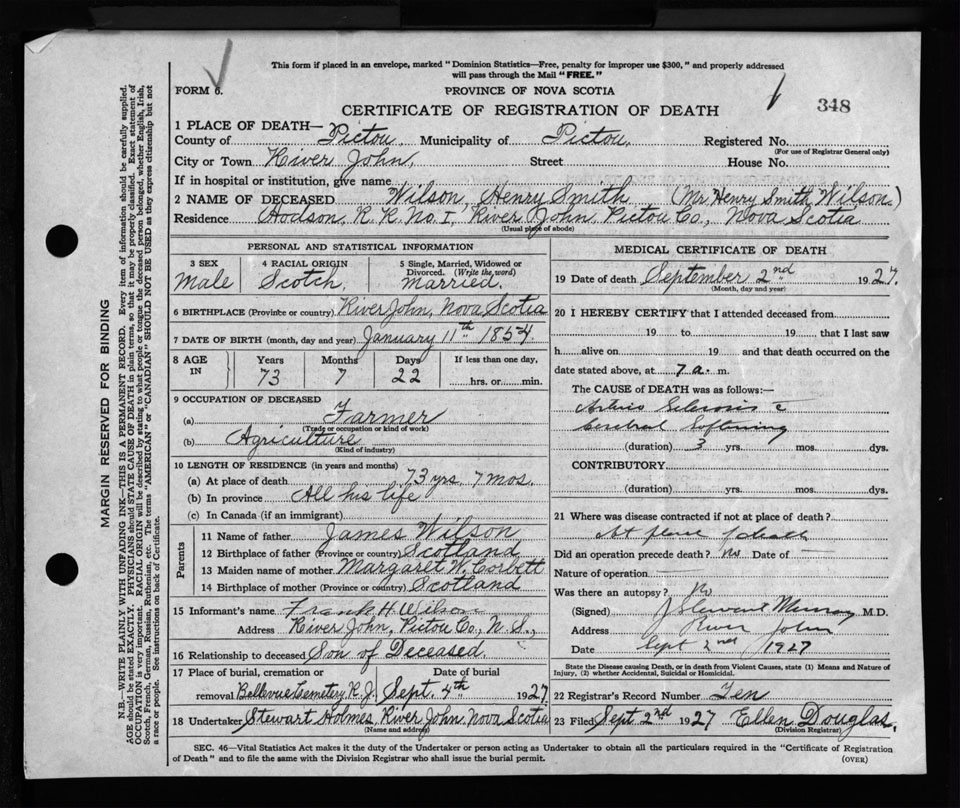 This form if placed in an envelope, marked "Dominion Statistics—Free, penalty for improper use $300," and properly addressed
will pass through the Mail "FREE."
FORM 6.
PROVINCE OF NOVA SCOTIA
CERTIFICATE OF REGISTRATION OF DEATH
348
1 PLACE OF DEATH—
County of Pictou. Municipality of Pictou. Registered No.
(For use of Registrar General only)
City or Town River John. Street House No.
If in hospital or institution, give name
2 NAME OF DECEASED Wilson, Henry Smith (Mr. Henry Smith Wilson.)
Residence Hodson, R.R. No. 1, River John, Pictou Co., Nova Scotia
(Usual place of abode)
PERSONAL AND STATISTICAL INFORMATION
3 SEX
Male
4 RACIAL ORIGIN
Scotch.
5 Single, Married, Widowed or
Divorced. (Write the word)
Married.
6 BIRTHPLACE (Province or country) River John, Nova Scotia
7 DATE OF BIRTH (month, day and year) January 11th 1854
8 AGE IN
Years Months Days If less than one day,
73 7 22 hrs. or min.
9 OCCUPATION OF DECEASED
(a) Farmer
(Trade or occupation or kind of work)
(b) Agriculture
(Kind of industry)
10 LENGTH OF RESIDENCE (in years and months)
(a) At place of death 73 yrs 7 mos.
(b) In province All his life
(c) In Canada (if an immigrant)
Parents
11 Name of father James Wilson
12 Birthplace of father (Province or country) Scotland
13 Maiden name of mother Margaret W. Corbett
14 Birthplace of mother (Province or Country) Scotland
15 Informant's name Frank H. Wilson
Address River John, Pictou Co., N.S.,
16 Relationship to deceased Son of Deceased.
17 Place of burial, cremation or Date of burial
removal Bellevue Cemetery, R.J. Sept. 4th 1927
18 Undertaker Stewart Holmes, River John, Nova Scotia
(Name and address)
MEDICAL CERTIFICATE OF DEATH
19 Date of death September 2nd 1927.
(Month, day and year)
20 I HEREBY CERTIFY that I attended deceased from
19 to 19 that I last saw
h alive on 19 and that death occurred on the
date stated above, at 7 a. m.
The CAUSE of DEATH was as follows:—
Arterio Sclerosis c̄
Cerebral Softening
(duration) 3 yrs. mos. dys.
CONTRIBUTORY
(duration) yrs. mos. dys.
21 Where was disease contracted if not at place of death?
At place of death
Did an operation precede death? No Date of —
Nature of operation —
Was there an autopsy? No
(Signed) J Stewart Murray M.D.
Address River John
Date Sept 2nd 1927
State the Disease causing Death, or in death from Violent Causes, state (1) Means and Nature of
Injury, (2) whether Accidental, Suicidal or Homicidal.
22 Registrar's Record Number Ten
23 Filed Sept 2nd 1927 Ellen Douglas,
(Division Registrar)
SEC. 46—Vital Statistics Act makes it the duty of the Undertaker or person acting as Undertaker to obtain all the particulars required in the "Certificate of Registration
of Death" and to file the same with the Division Registrar who shall issue the burial permit.
(OVER)
MARGIN RESERVED FOR BINDING
N.B.—WRITE PLAINLY WITH UNFADING INK—THIS IS A PERMANENT RECORD. Every item of information should be carefully supplied.
AGE should be stated EXACTLY. PHYSICIANS should STATE CAUSE OF DEATH in plain terms, so that it may be properly classified. Exact statement of
OCCUPATION is very important. RACIAL ORIGIN will be described by stating to what people or tongue the deceased person belonged, whether English, Irish,
Scotch, French, German, Russian, Ruthenian, etc. The terms "AMERICAN" or "CANADIAN" SHOULD NOT BE USED as they express citizenship but not
a race or people. See instructions on back of Certificate.